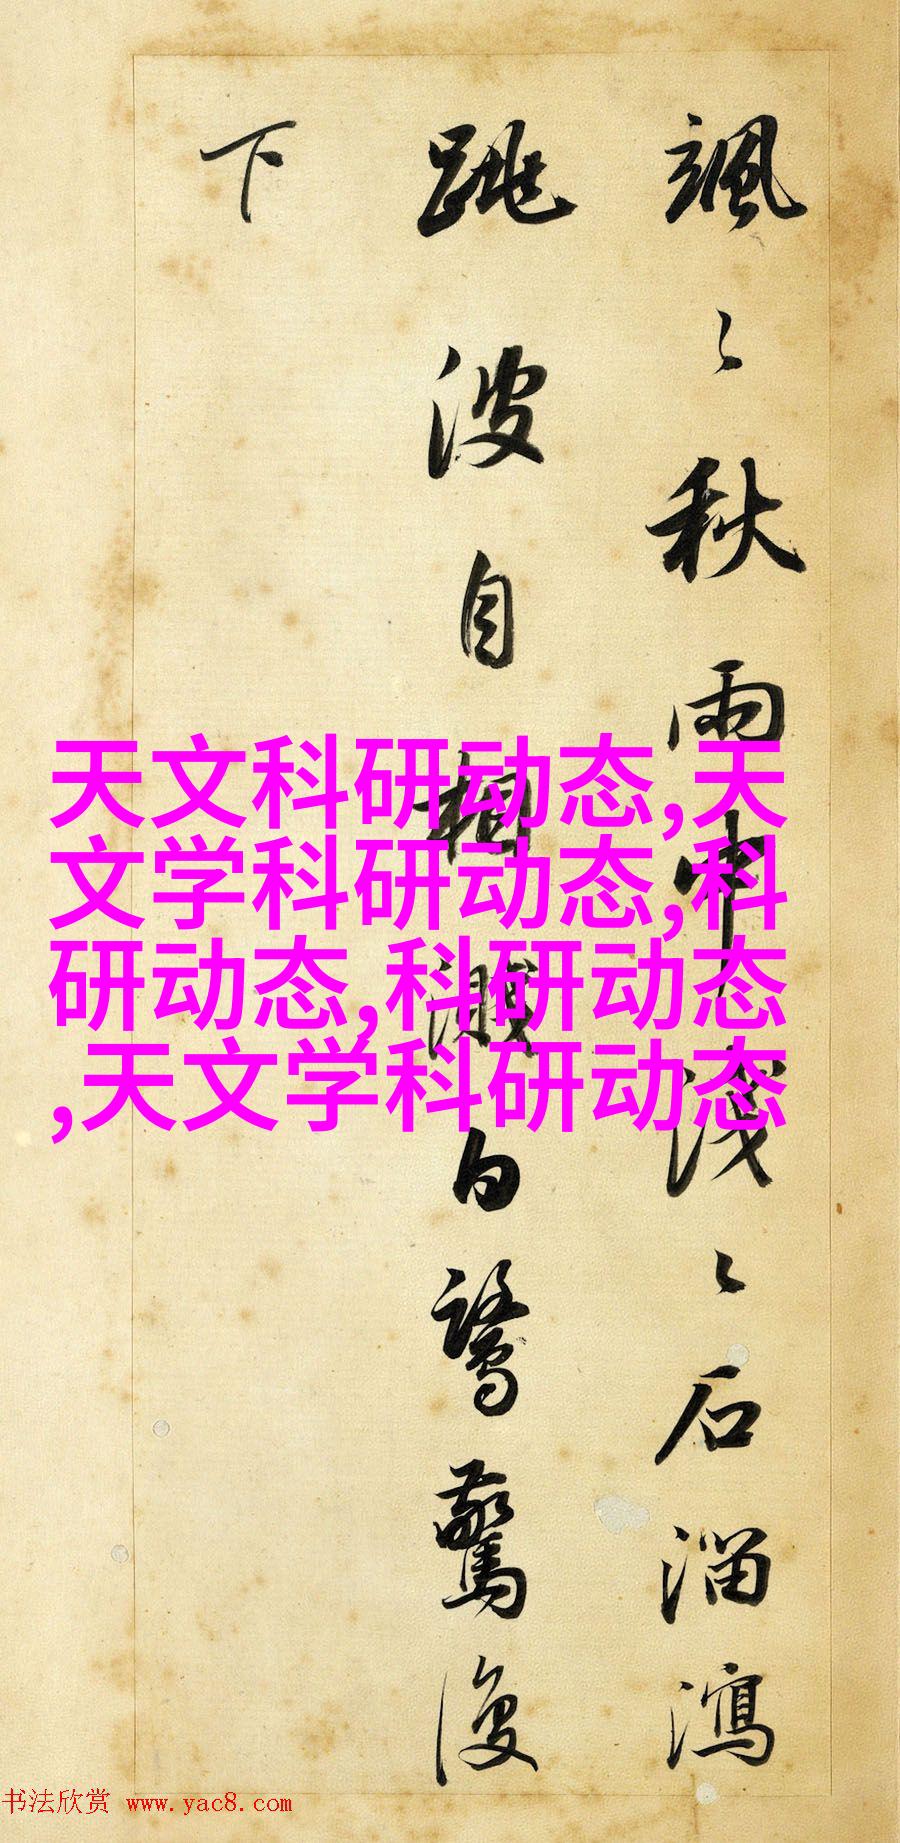 颯〻秋雨中淺〻石溜瀉
跳波自相濺白鷺驚復
下
天文科研动态,天
文学科研动态,科
研动态,科研动态
,天文学科研动态
书法欣赏 www.yac8.com